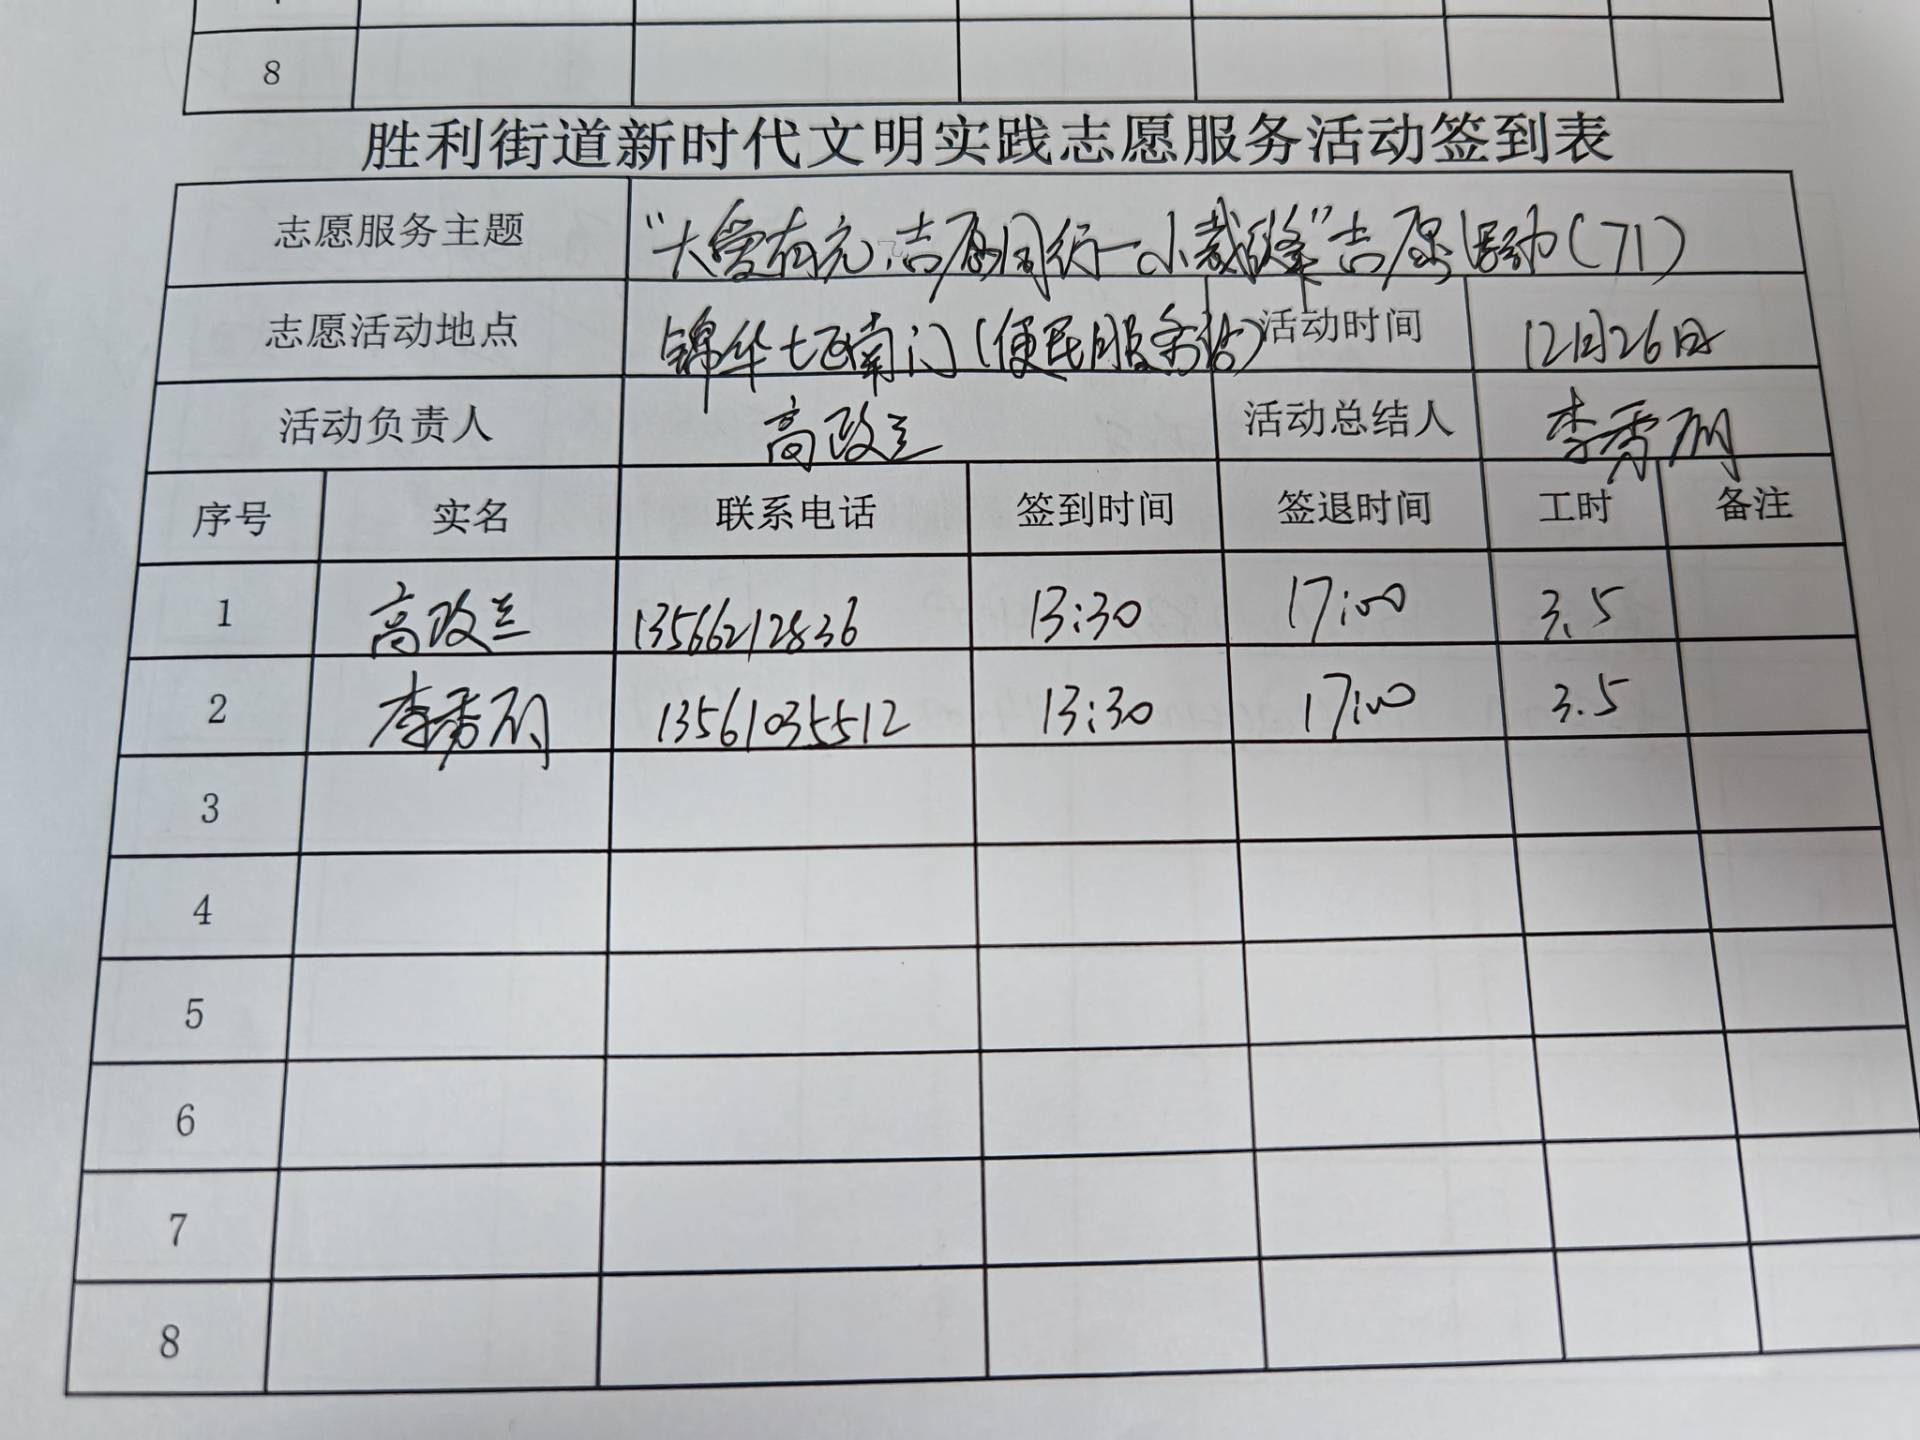 8
胜利街道新时代文明实践志愿服务活动签到表
志愿服务主题 "大爱有充,志愿同行一小裁缝"志愿活动(71)
志愿活动地点 锦华七区南门(便民服务站) 活动时间 12月26日
活动负责人 高政兰 活动总结人 李秀丽
序号 实名 联系电话 签到时间 签退时间 工时 备注
1 高政兰 13566212836 13:30 17:00 3.5
2 李秀丽 13561035512 13:30 17:00 3.5
3
4
5
6
7
8